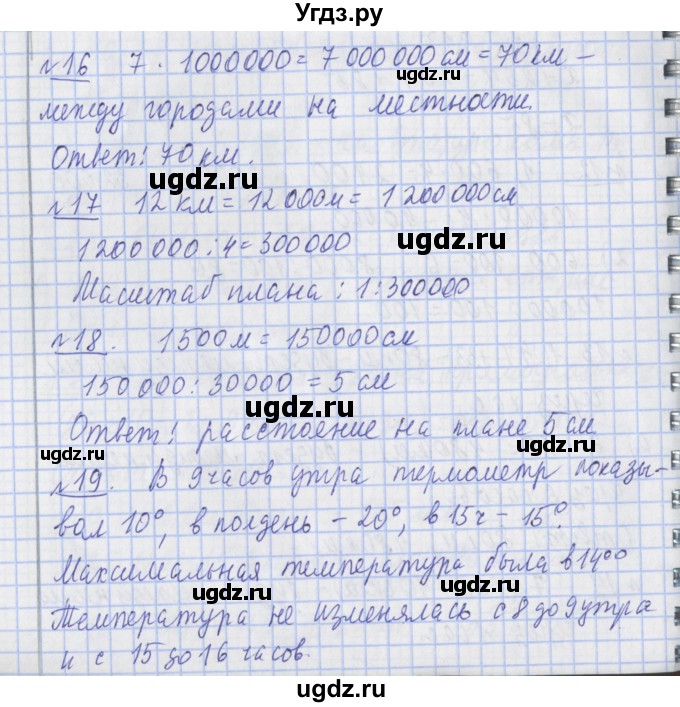 Угдз.ру
№16 7 · 1000000 = 7 000 000 см = 70 км –
ugdz.ru
между городами на местности.
Ответ: 70 км.
ugdz.ru
№17 12 км = 12 000м = 1 200 000см
1200 000 : 4 = 300000
ugdz.ru
Масштаб плана : 1:300000
№18. 1500м = 150000см
150 000 : 30000 = 5 см
ugdz.ru
Ответ: расстоение на плане 5 см
ugdz.ru
ugdz.ru
№19. В 9 часов утра термометр показы-
вал 10°, в полдень – 20°, в 15ч – 15°.
Максимальная температура была в 14⁰⁰
Температура не изменялась с 8 до 9 утра
и с 15 до 16 часов.
ugdz.ru
ugdz.ru